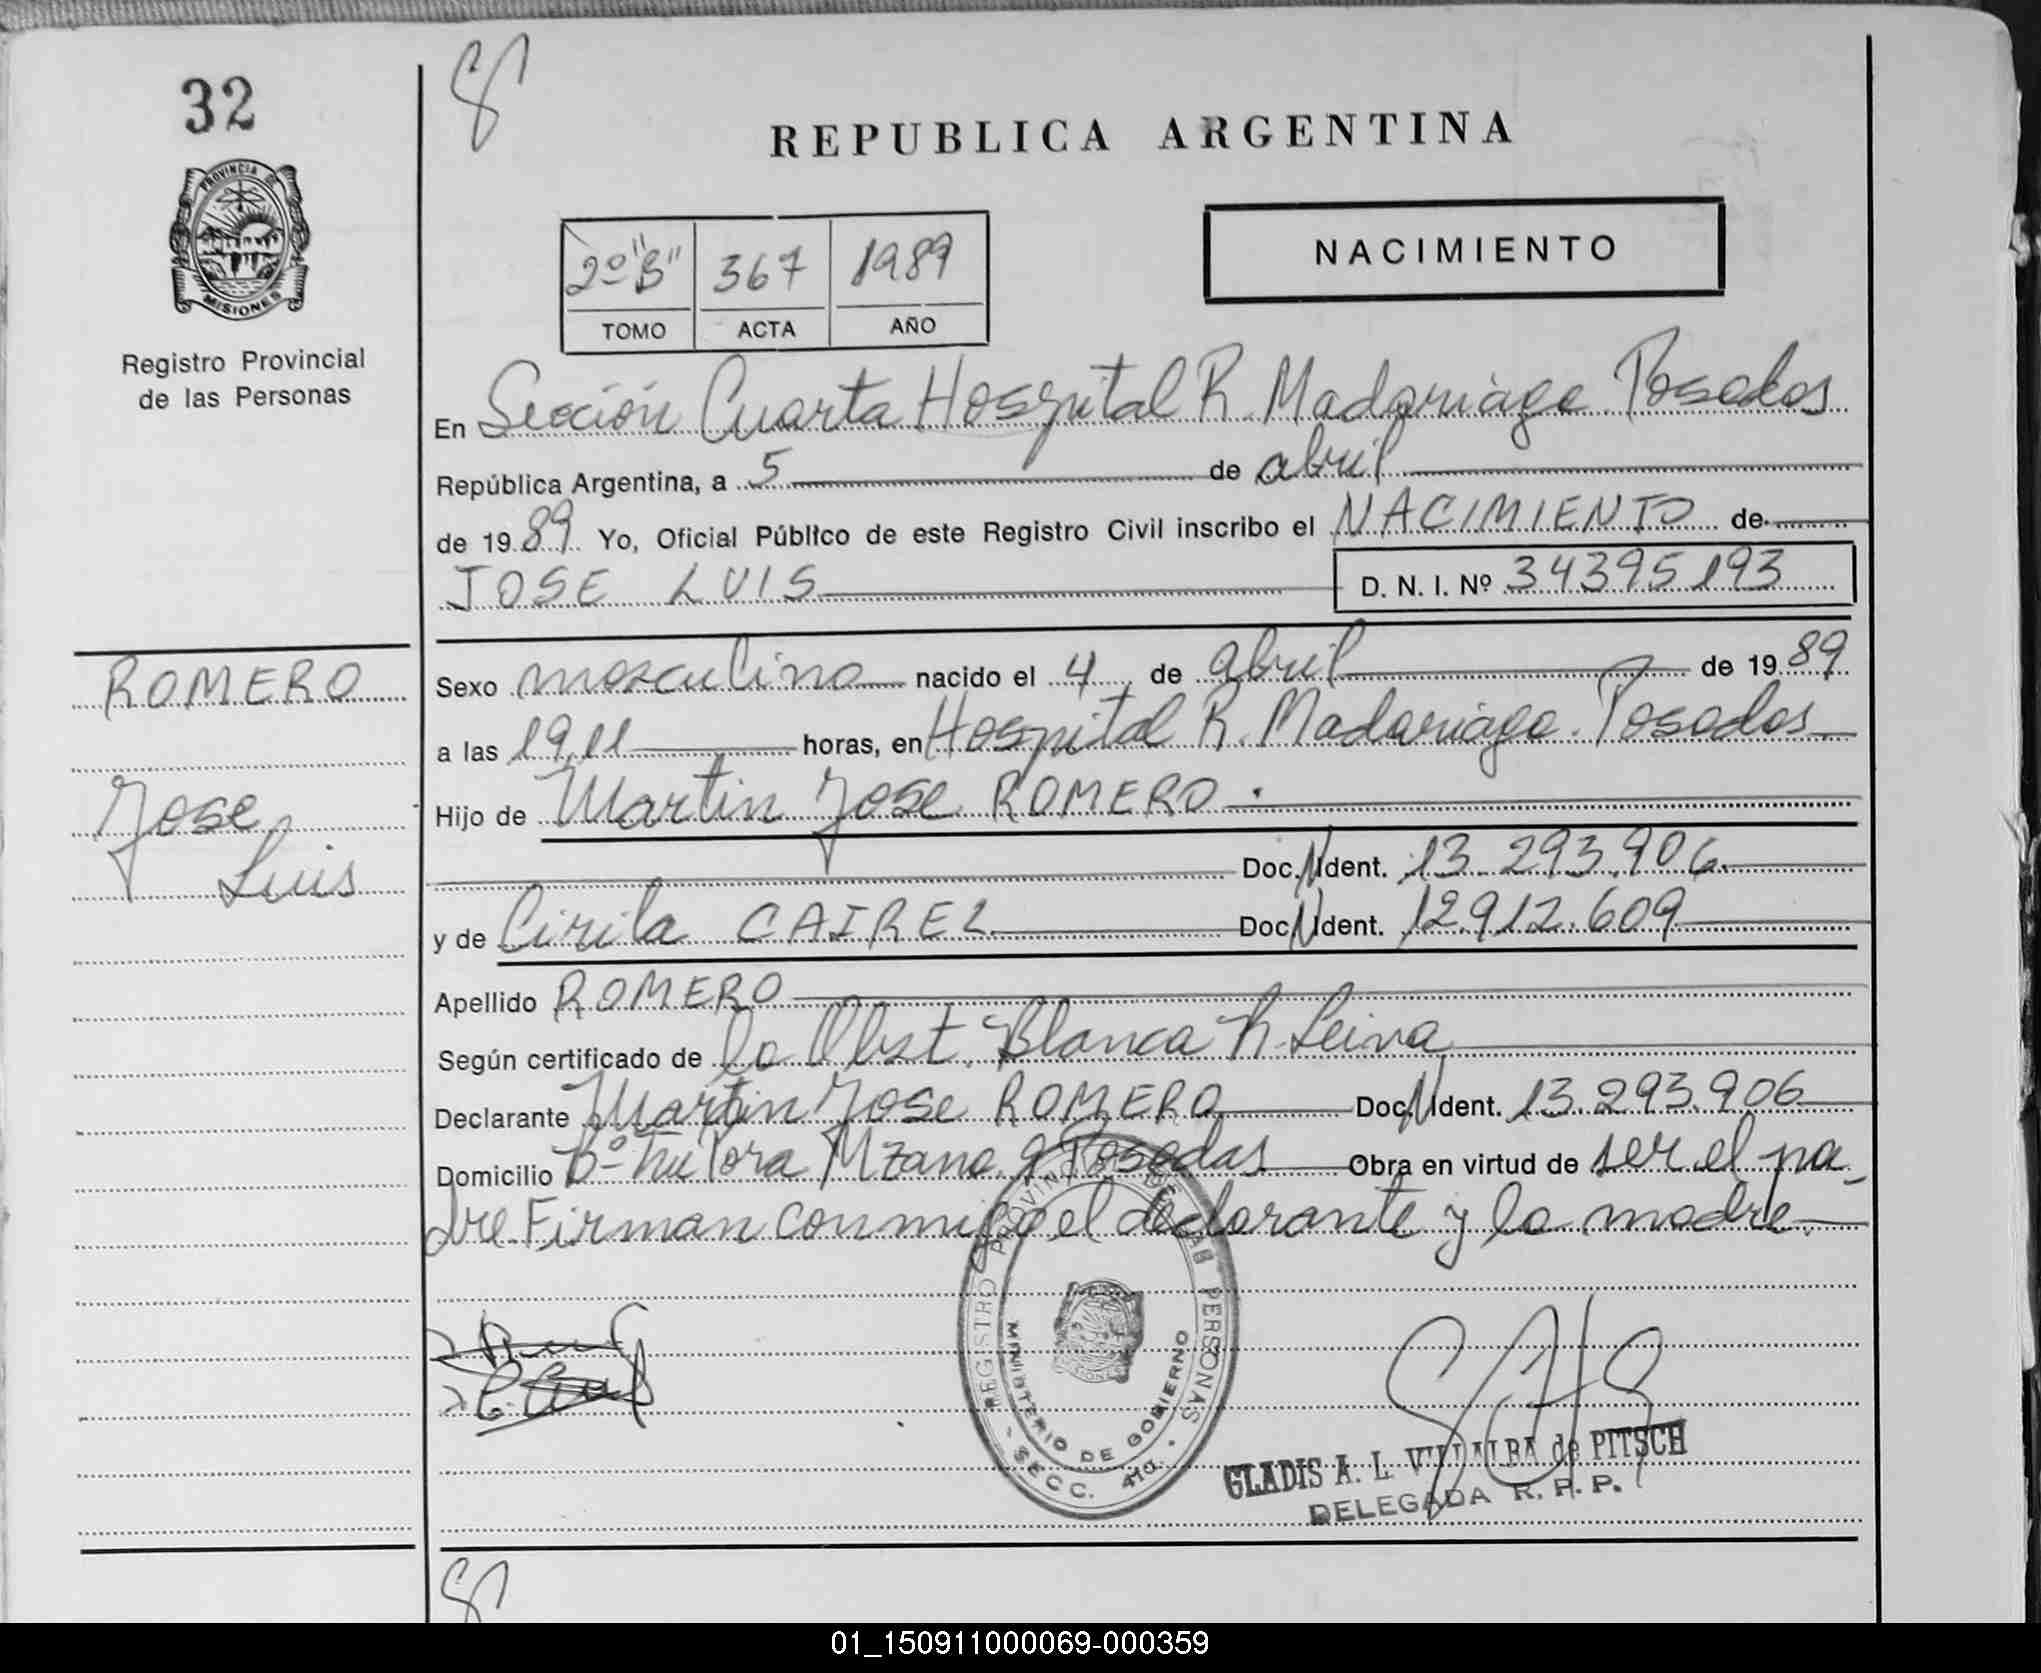 32
REPUBLICA ARGENTINA
PROVINCIA DE
MISIONES
Registro Provincial
de las Personas
NACIMIENTO
2º "B" 367 1989
TOMO ACTA AÑO
En Sección Cuarta Hospital R. Madariaga. Posadas
República Argentina, a 5 de abril
de 1989 Yo, Oficial Público de este Registro Civil inscribo el NACIMIENTO de
JOSE LUIS D. N. I. Nº 34395193
ROMERO
Jose
Luis
Sexo masculino nacido el 4 de abril de 1989
a las 19,11 horas, en Hospital R. Madariaga. Posadas
Hijo de Martin Jose ROMERO.
Doc. N Ident. 13.293.906
y de Cirila CAIREL Doc. N Ident. 12.912.609
Apellido ROMERO
Según certificado de la Obst. Blanca N. Leiva
Declarante Martin Jose ROMERO Doc. N Ident. 13.293.906
Domicilio Bº Mzana. 9 Posadas Obra en virtud de ser el pa-
dre. Firman conmigo el declarante y la madre.
REGISTRO PROVINCIAL DE LAS PERSONAS
MINISTERIO DE GOBIERNO
- SECC. 4ta. -
GLADIS A. L. VILLALBA de PITSCH
DELEGADA R. P. P.
01_150911000069-000359